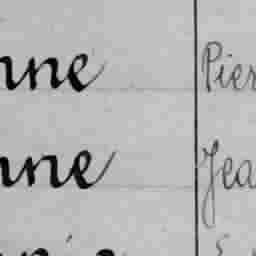 nne Pier
nne Jea